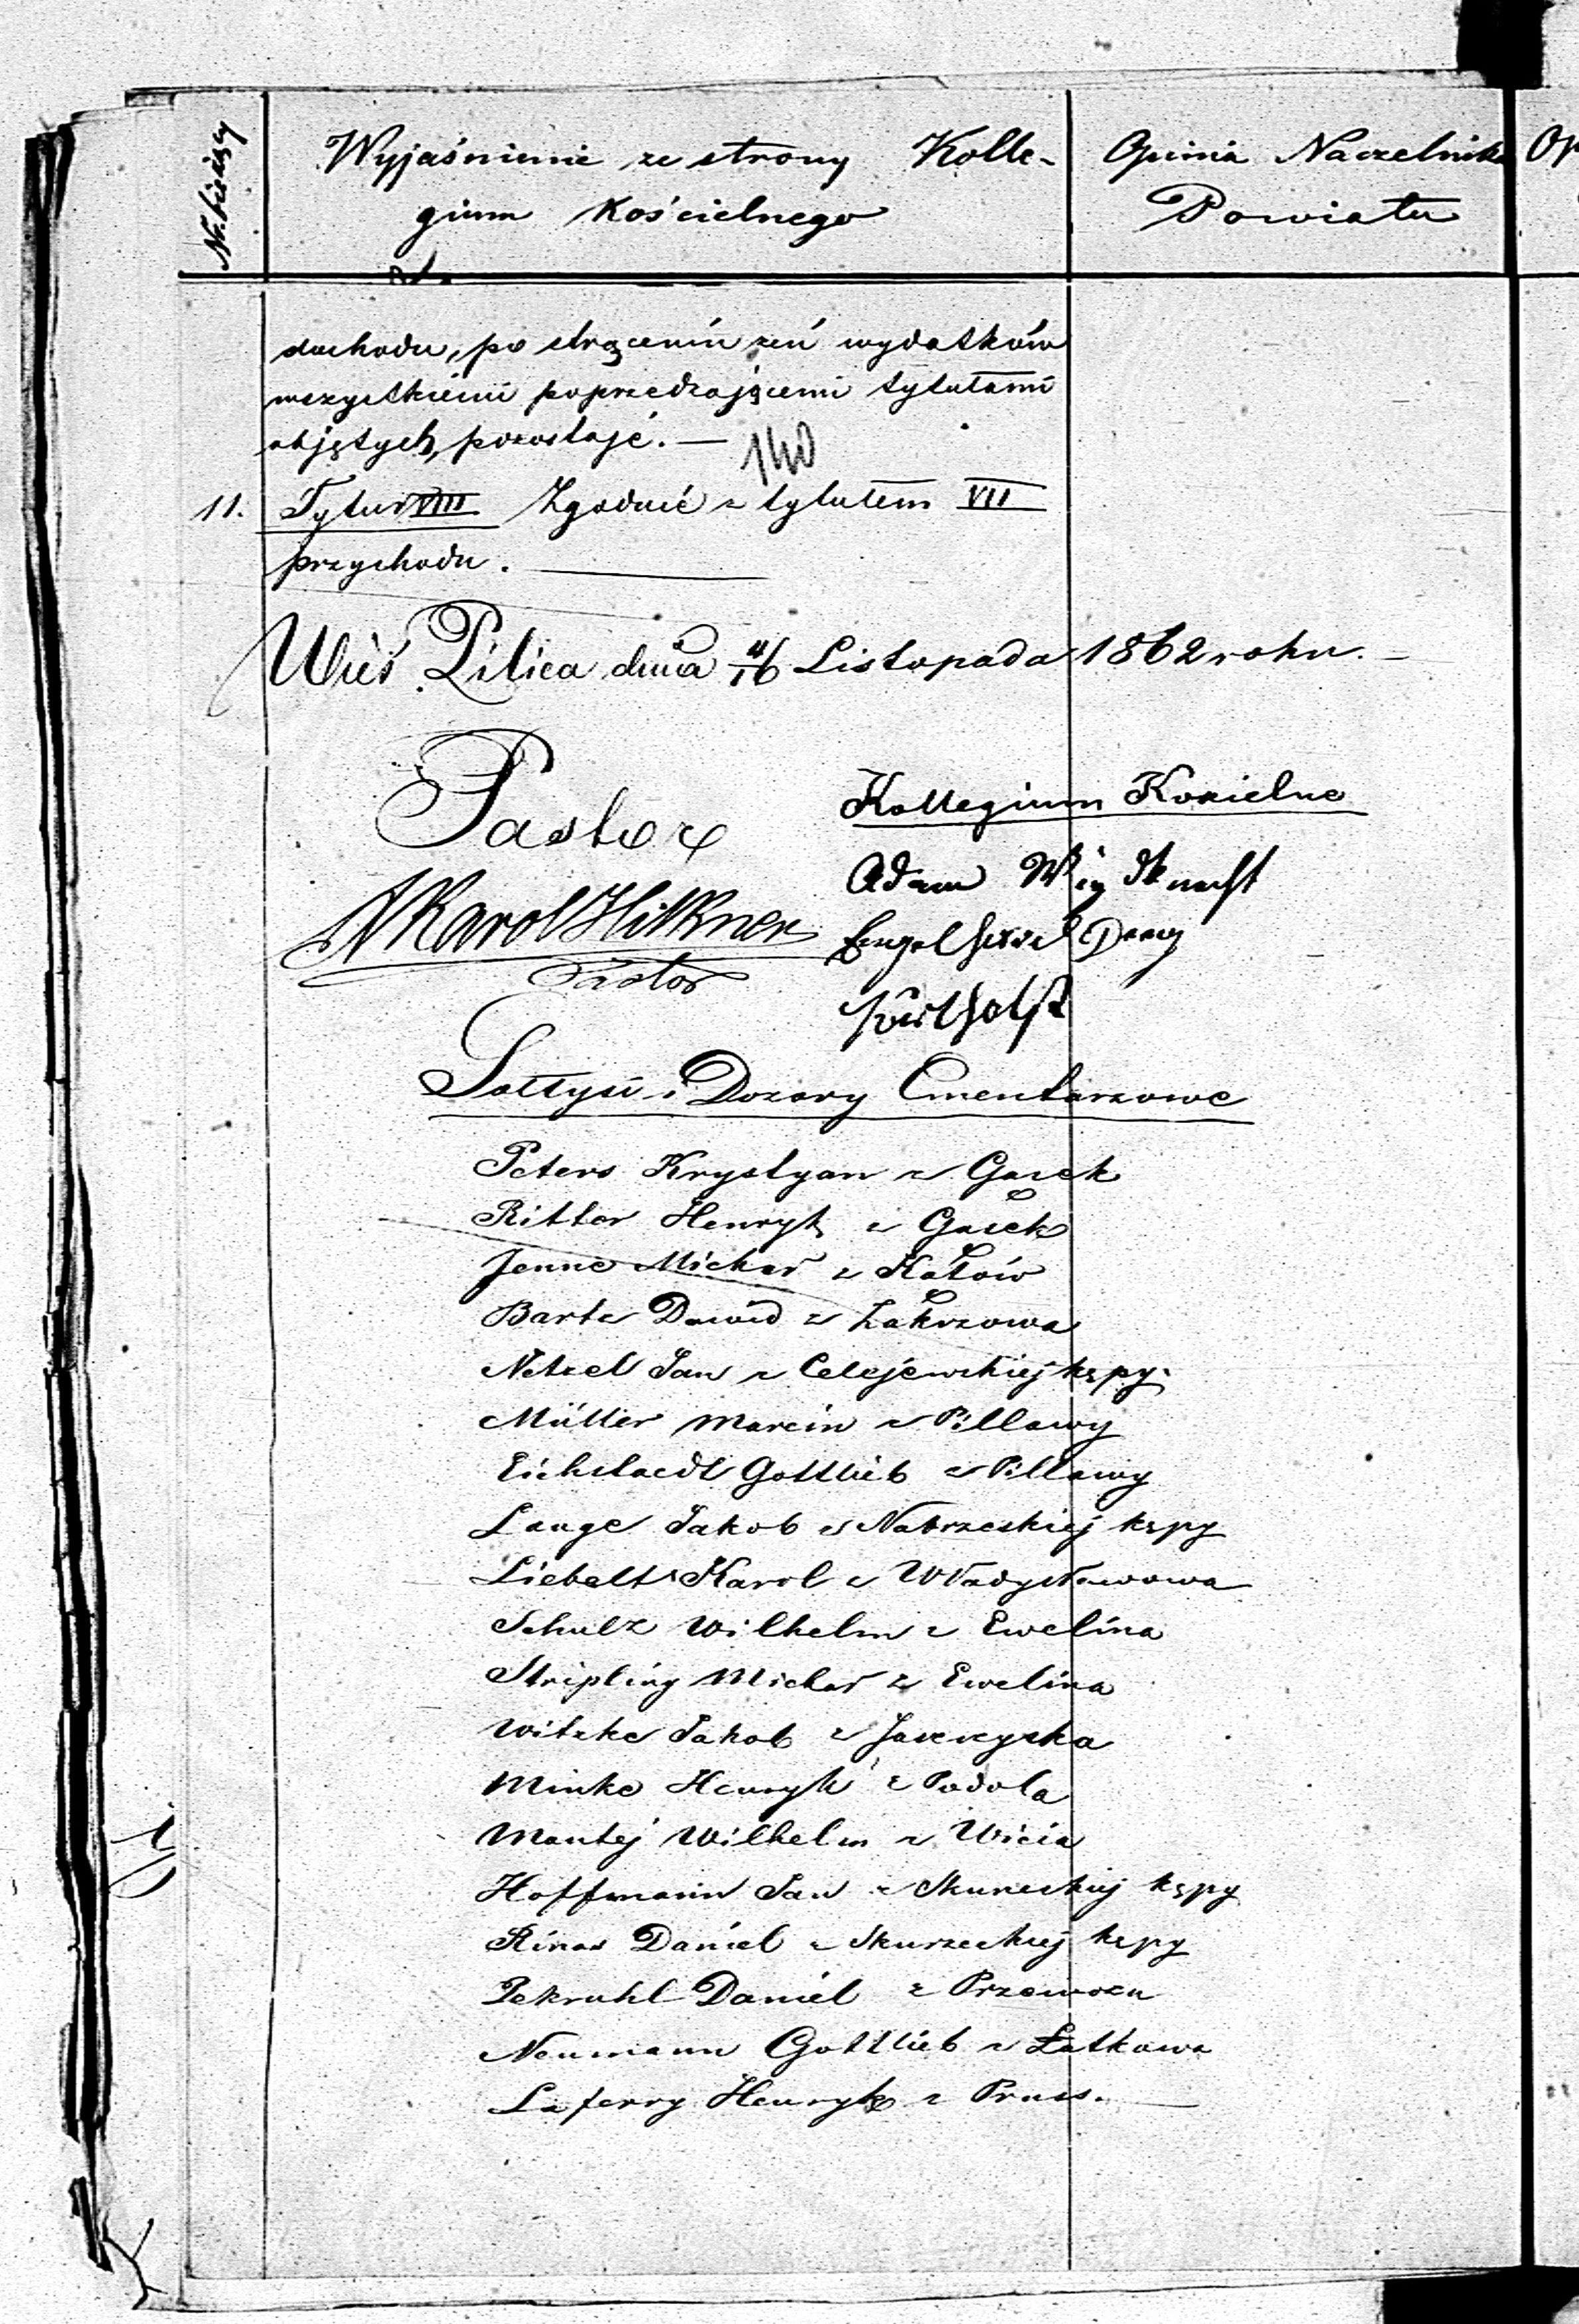 Nr. bieżący
Wyjaśnienie ze strony Kolle-
gium Kościelnego
Opinia Naczelnika
Powiatu
Op
dochodu, po strąceniu zeń wydatków
wszystkiemi poprzedzającemi tytułami
objętych, pozostaje. —
140
11. Tytuł VIII Zgodnie z tytułem VII
przychodu.
Wieś Pilica dnia 4/16 Listopada 1862 roku. —
Pastor
Kollegium Kozielne
Karol Hilkner
Pastor
Adam
Sołtysi i Dozory Cmentarzowe
Peters Krystyan z Gąsek
Ritter Henryk z Gąsek
Jenne Michał z Kątów
Bartz Dawid z Zakrzowa
Netzel Jan z Celejewskiej kępy.
Müller Marcin z Pillawy
Eichstaedt Gottlieb z Pillawy
Lange Jakob z Nabrzeskiej kępy
Liebelt Karol z Władysławowa
Schulz Wilhelm z Ewelina
Stripling Michał z Ewelina
Witzke Jakob z
Minke Henryk z Podola
Mantej Wilhelm z Wicia
Hoffmann Jan z Skureckiej kępy
Rinas Daniel z Skurzeckiej kępy
Pekruhl Daniel z Przewozu
Neumann Gottlieb z Łatkowa
Laferry Henryk z Pruss. —